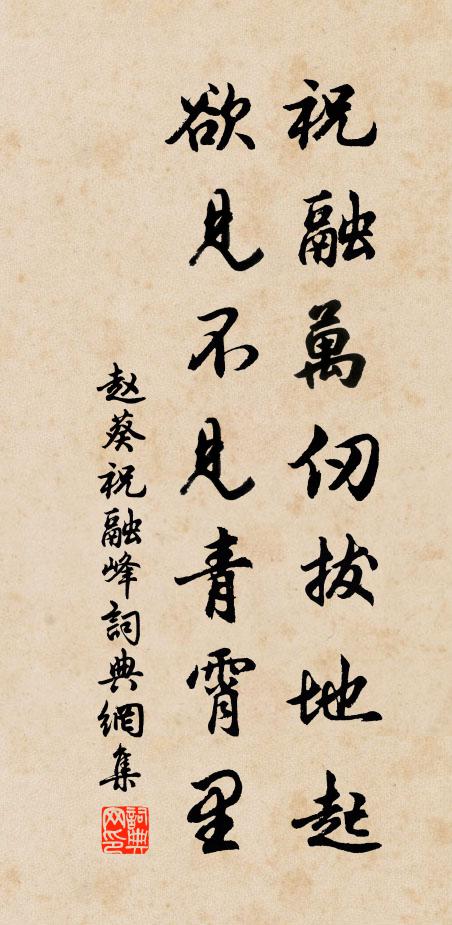 祝融萬仞拔地起
欲見不見青霄里
赵葵祝融峰詞典網集
詞典网印